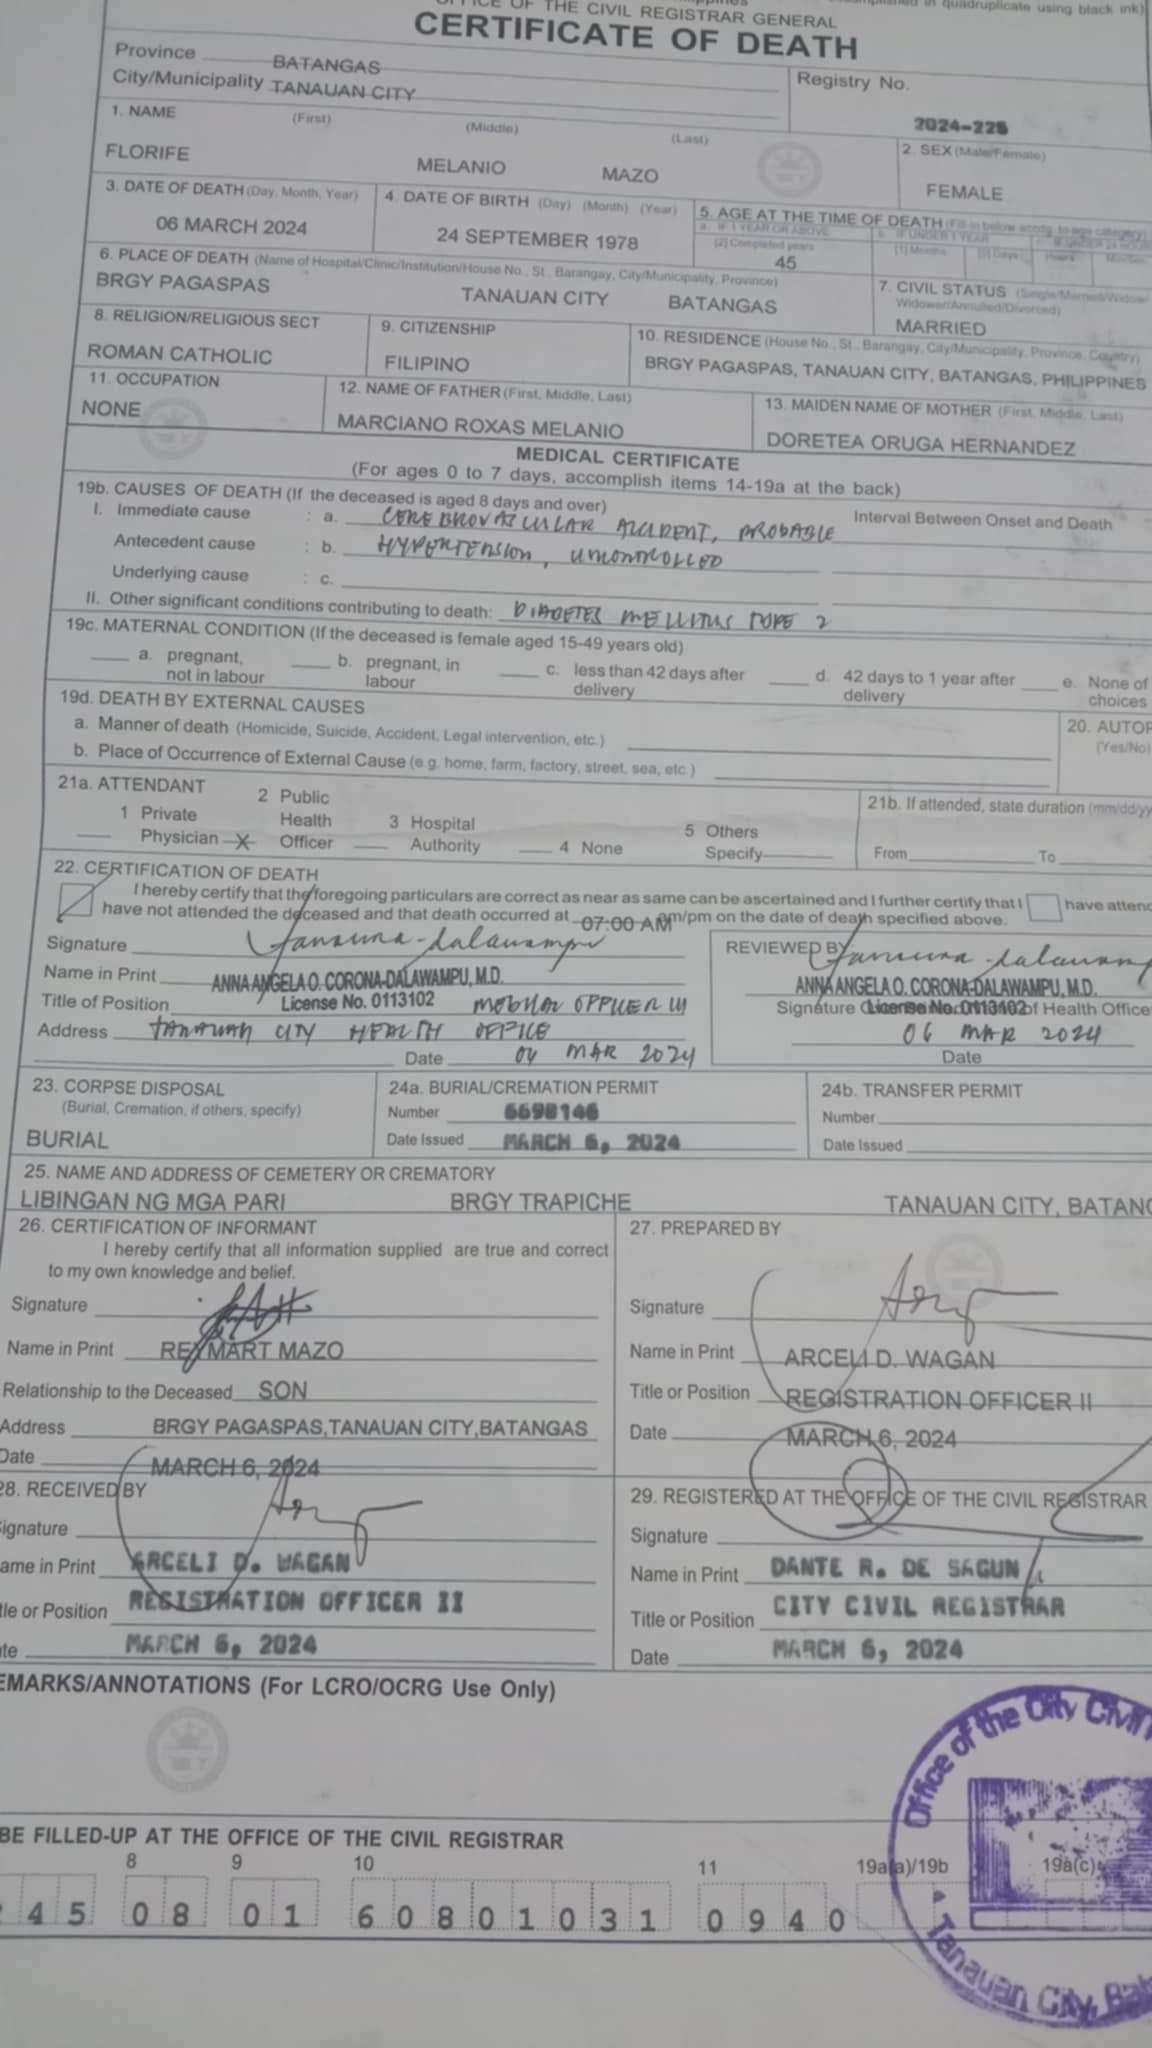 OFFICE OF THE CIVIL REGISTRAR GENERAL
in quadruplicate using black ink)
CERTIFICATE OF DEATH
Province BATANGAS
City/Municipality TANAUAN CITY
Registry No.
2024-225
1. NAME (First) (Middle) (Last)
FLORIFE MELANIO MAZO
2. SEX (Male/Female)
FEMALE
3. DATE OF DEATH (Day, Month, Year)
06 MARCH 2024
4. DATE OF BIRTH (Day) (Month) (Year)
24 SEPTEMBER 1978
5. AGE AT THE TIME OF DEATH (Fill-in below accdg. to age category)
a. IF 1 YEAR OR ABOVE
[2] Completed years
45
b. IF UNDER 1 YEAR
[1] Months [0] Days
Hours
6. PLACE OF DEATH (Name of Hospital/Clinic/Institution/House No., St., Barangay, City/Municipality, Province)
BRGY PAGASPAS TANAUAN CITY BATANGAS
7. CIVIL STATUS (Single/Married/Widow/
Widower/Annulled/Divorced)
MARRIED
8. RELIGION/RELIGIOUS SECT
ROMAN CATHOLIC
9. CITIZENSHIP
FILIPINO
10. RESIDENCE (House No., St., Barangay, City/Municipality, Province, Country)
BRGY PAGASPAS, TANAUAN CITY, BATANGAS, PHILIPPINES
11. OCCUPATION
NONE
12. NAME OF FATHER (First, Middle, Last)
MARCIANO ROXAS MELANIO
13. MAIDEN NAME OF MOTHER (First, Middle, Last)
DORETEA ORUGA HERNANDEZ
MEDICAL CERTIFICATE
(For ages 0 to 7 days, accomplish items 14-19a at the back)
19b. CAUSES OF DEATH (If the deceased is aged 8 days and over)
Interval Between Onset and Death
I. Immediate cause : a. CEREBROVASCULAR ACCIDENT, PROBABLE
Antecedent cause : b. HYPERTENSION, UNCONTROLLED
Underlying cause : c.
II. Other significant conditions contributing to death: DIABETES MELLITUS TYPE 2
19c. MATERNAL CONDITION (If the deceased is female aged 15-49 years old)
a. pregnant, not in labour
b. pregnant, in labour
c. less than 42 days after delivery
d. 42 days to 1 year after delivery
e. None of choices
19d. DEATH BY EXTERNAL CAUSES
a. Manner of death (Homicide, Suicide, Accident, Legal intervention, etc.)
b. Place of Occurrence of External Cause (e.g. home, farm, factory, street, sea, etc.)
20. AUTOP
(Yes/No)
21a. ATTENDANT
1 Private Physician
X 2 Public Health Officer
3 Hospital Authority
4 None
5 Others Specify
21b. If attended, state duration (mm/dd/yy
From To
22. CERTIFICATION OF DEATH
I hereby certify that the foregoing particulars are correct as near as same can be ascertained and I further certify that I have attend
have not attended the deceased and that death occurred at 07:00 AM am/pm on the date of death specified above.
Signature
Name in Print ANNA ANGELA O. CORONA-DALAWAMPU, M.D.
License No. 0113102
Title of Position MEDICAL OFFICER III
Address TANAUAN CITY HEALTH OFFICE
Date 06 MAR 2024
REVIEWED BY:
ANNA ANGELA O. CORONA-DALAWAMPU, M.D.
License No. 0113102
Signature Over Printed Name of Health Office
06 MAR 2024
Date
23. CORPSE DISPOSAL
(Burial, Cremation, if others, specify)
BURIAL
24a. BURIAL/CREMATION PERMIT
Number 6698146
Date Issued MARCH 6, 2024
24b. TRANSFER PERMIT
Number
Date Issued
25. NAME AND ADDRESS OF CEMETERY OR CREMATORY
LIBINGAN NG MGA PARI BRGY TRAPICHE TANAUAN CITY, BATANG
26. CERTIFICATION OF INFORMANT
I hereby certify that all information supplied are true and correct
to my own knowledge and belief.
Signature
Name in Print REYMART MAZO
Relationship to the Deceased SON
Address BRGY PAGASPAS,TANAUAN CITY,BATANGAS
Date MARCH 6, 2024
27. PREPARED BY
Signature
Name in Print ARCELI D. WAGAN
Title or Position REGISTRATION OFFICER II
Date MARCH 6, 2024
28. RECEIVED BY
Signature
ame in Print ARCELI D. WAGAN
tle or Position REGISTRATION OFFICER II
te MARCH 6, 2024
29. REGISTERED AT THE OFFICE OF THE CIVIL REGISTRAR
Signature
Name in Print DANTE R. DE SAGUN
Title or Position CITY CIVIL REGISTRAR
Date MARCH 6, 2024
EMARKS/ANNOTATIONS (For LCRO/OCRG Use Only)
Office of the City Civil
Tanauan City, Bat
BE FILLED-UP AT THE OFFICE OF THE CIVIL REGISTRAR
8 9 10 11 19a(a)/19b 19a(c)
45 08 01 60801031 0940